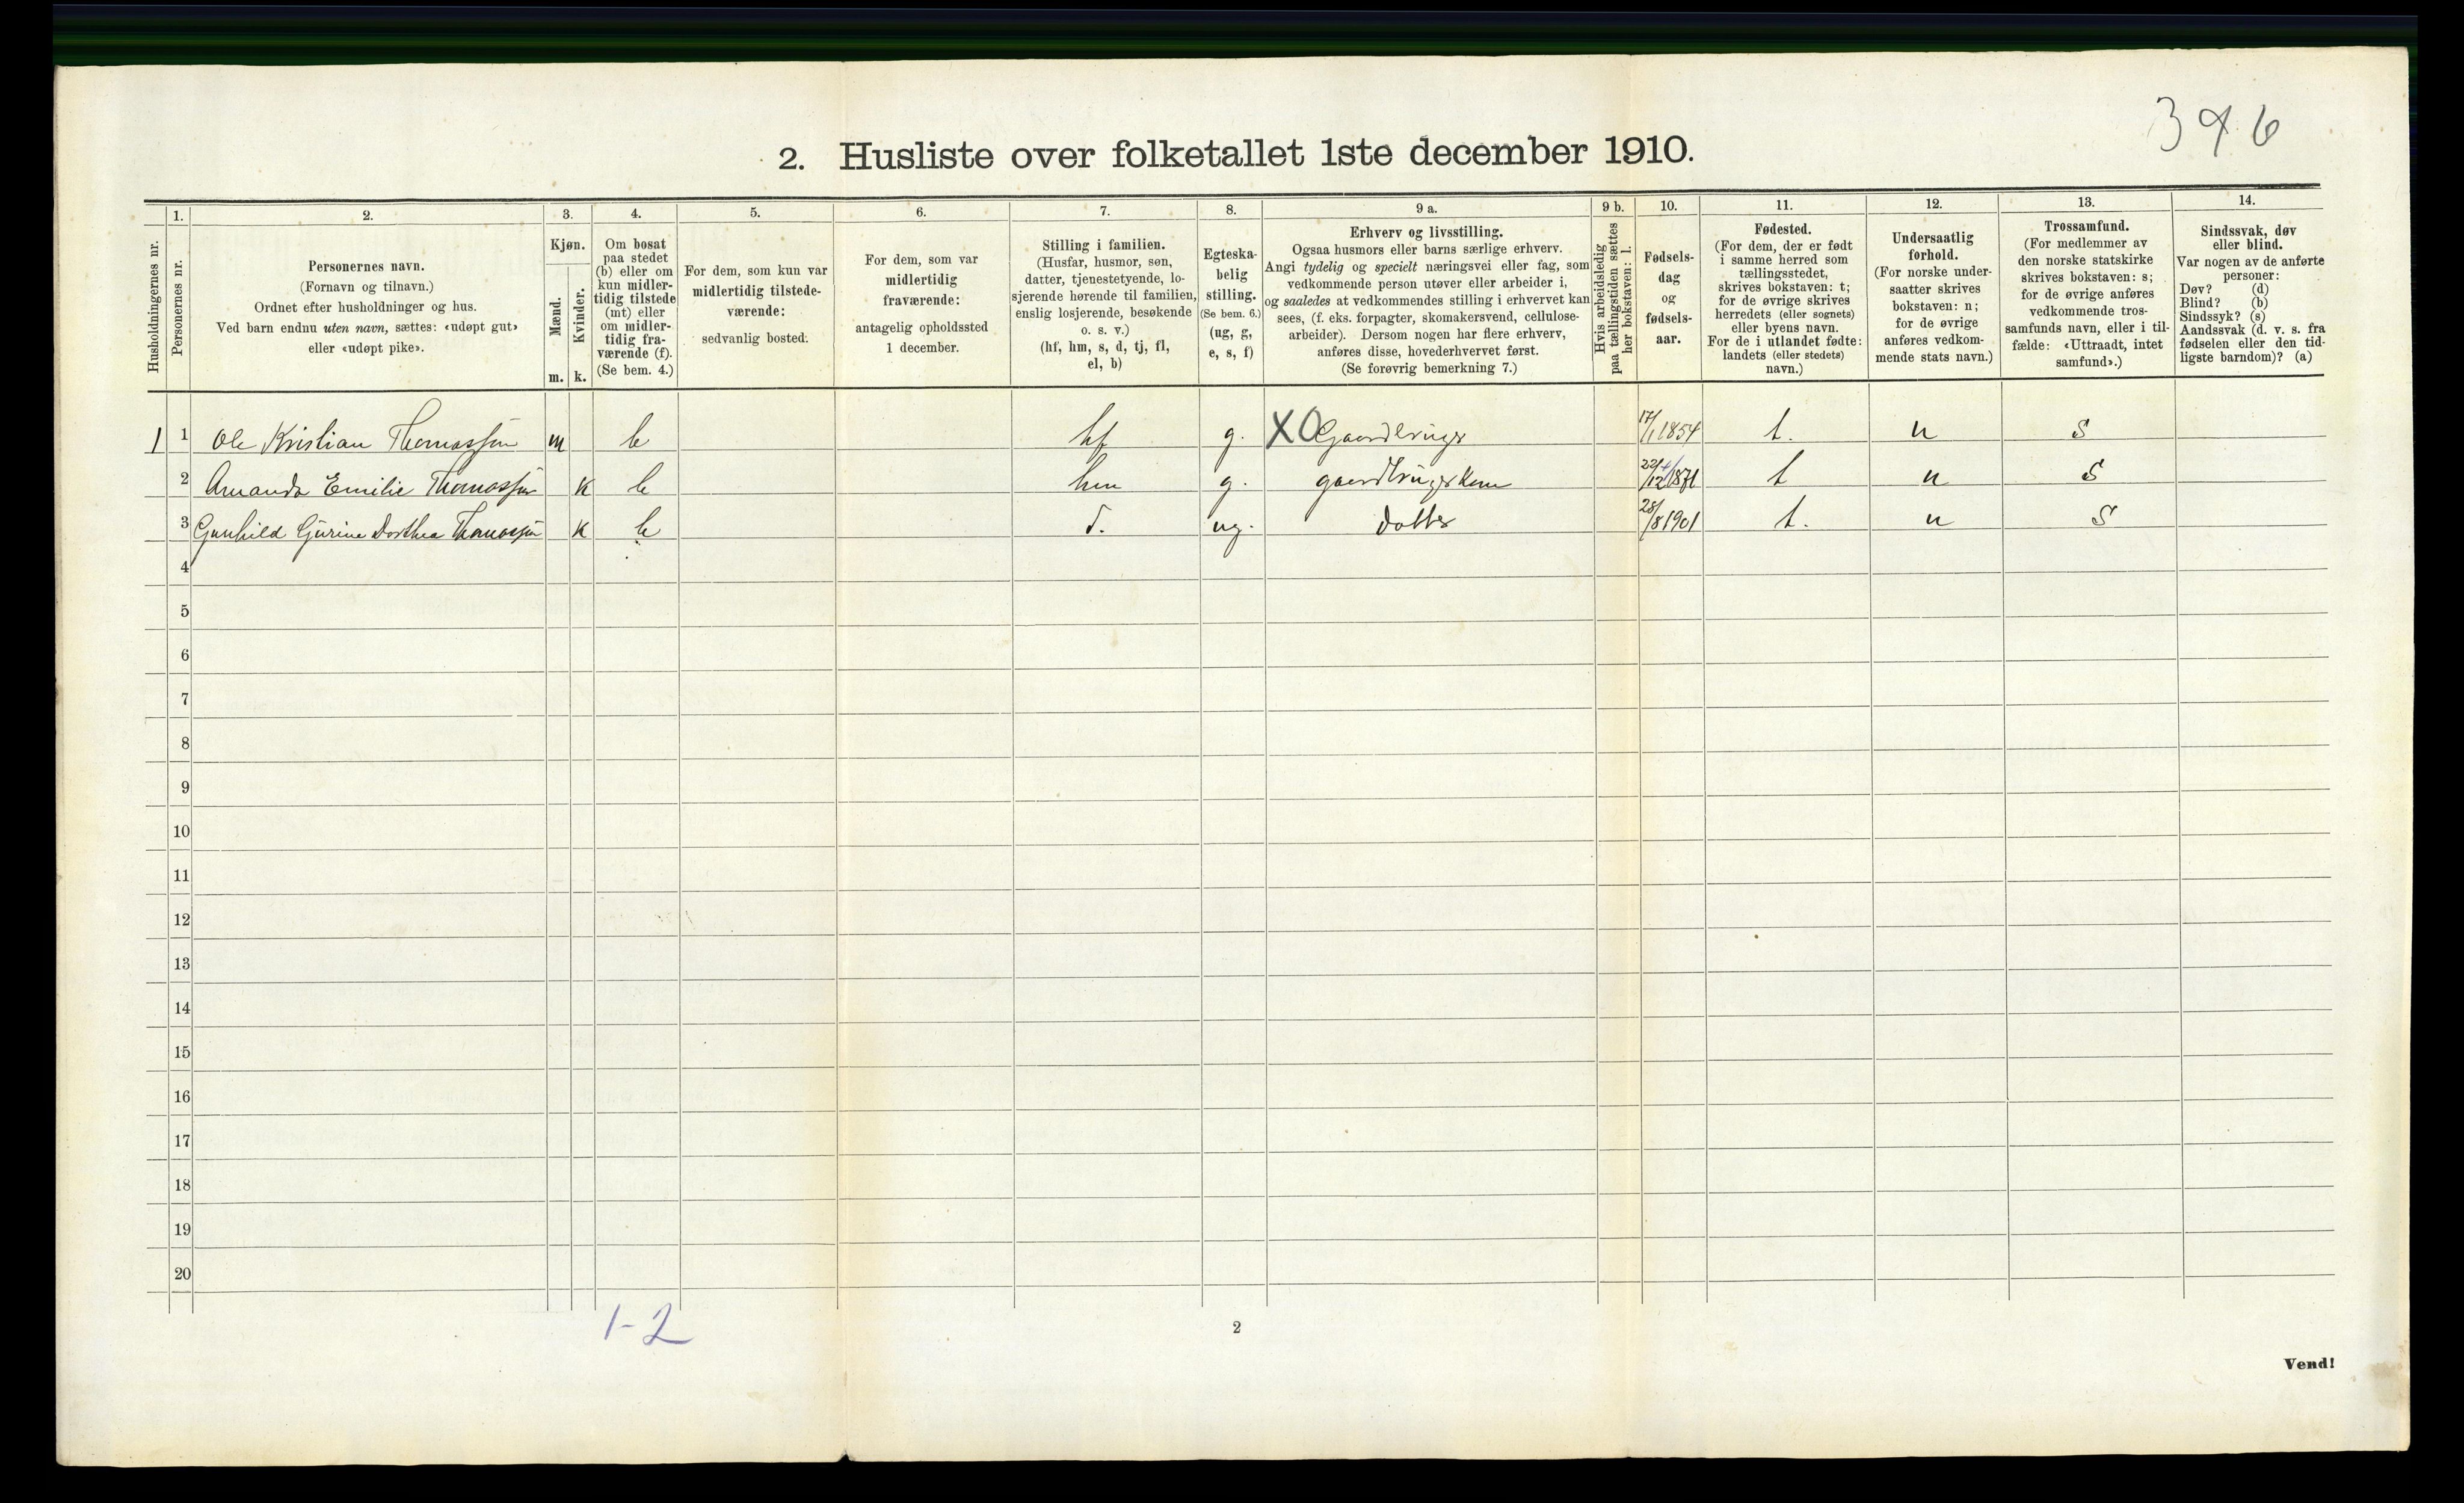 346
2. Husliste over folketallet 1ste december 1910.
Husholdningernes nr.
1.
Personernes nr.
2.
Personernes navn.
(Fornavn og tilnavn.)
Ordnet efter husholdninger og hus.
Ved barn endnu uten navn, sættes: «udøpt gut»
eller «udøpt pike».
3.
Kjøn.
Mænd.
Kvinder.
m. k.
4.
Om bosat
paa stedet
(b) eller om
kun midler-
tidig tilstede
(mt) eller
om midler-
tidig fra-
værende (f).
(Se bem. 4.)
5.
For dem, som kun var
midlertidig tilstede-
værende:
sedvanlig bosted.
6.
For dem, som var
midlertidig
fraværende:
antagelig opholdssted
1 december.
7.
Stilling i familien.
(Husfar, husmor, søn,
datter, tjenestetyende, lo-
sjerende hørende til familien,
enslig losjerende, besøkende
o. s. v.)
(hf, hm, s, d, tj, fl,
el, b)
8.
Egteska-
belig
stilling.
(Se bem. 6.)
(ug, g,
e, s, f)
9 a.
Erhverv og livsstilling.
Ogsaa husmors eller barns særlige erhverv.
Angi tydelig og specielt næringsvei eller fag, som
vedkommende person utøver eller arbeider i,
og saaledes at vedkommendes stilling i erhvervet kan
sees, (f. eks. forpagter, skomakersvend, cellulose-
arbeider). Dersom nogen har flere erhverv,
anføres disse, hovederhvervet først.
(Se forøvrig bemerkning 7.)
9 b.
Hvis arbeidsledig
paa tællingstiden sættes
her bokstaven: l.
10.
Fødsels-
dag
og
fødsels-
aar.
11.
Fødested.
(For dem, der er født
i samme herred som
tællingsstedet,
skrives bokstaven: t;
for de øvrige skrives
herredets (eller sognets)
eller byens navn.
For de i utlandet fødte:
landets (eller stedets)
navn.)
12.
Undersaatlig
forhold.
(For norske under-
saatter skrives
bokstaven: n;
for de øvrige
anføres vedkom-
mende stats navn.)
13.
Trossamfund.
(For medlemmer av
den norske statskirke
skrives bokstaven: s;
for de øvrige anføres
vedkommende tros-
samfunds navn, eller i til-
fælde: «Uttraadt, intet
samfund».)
14.
Sindssvak, døv
eller blind.
Var nogen av de anførte
personer:
Døv? (d)
Blind? (b)
Sindssyk? (s)
Aandssvak (d. v. s. fra
fødselen eller den tid-
ligste barndom)? (a)
1 1 Ole Kristian Thomassen m b hf g. XO Gaardbruger 17/1 1854 t. n s
2 Amanda Emilie Thomassen k b hm g. gaardbrugerkone t n s
3 Gunhild Gurine Dorthea Thomassen k b d. ug. Datter 28/8 1901 t. n s
4
5
6
7
8
9
10
11
12
13
14
15
16
17
18
19
20
1-2
2
Vend!